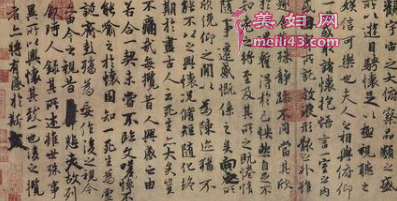 觀宇宙之大俯察品類之盛
所以遊目騁懷足以極視聽之
娛信可樂也夫人之相與俯仰
一世或取諸懷抱悟言一室之內
或因寄所託放浪形骸之外雖
趣舍萬殊靜躁不同當其欣
於所遇暫得於己怏然自足不
知老之將至及其所之既惓情
隨事遷感慨係之矣向之所
欣俛仰之閒以為陳迹猶不
能不以之興懷況脩短隨化終
期於盡古人云死生亦大矣豈
不痛哉每攬昔人興感之由
若合一契未嘗不臨文嗟悼不
能喻之於懷固知一死生為虛
誕齊彭殤為妄作後之視今
亦由今之視昔悲夫故列
敘時人錄其所述雖世殊事
異所以興懷其致一也後之攬
者亦將有感於斯文
美妇网
meili43.com